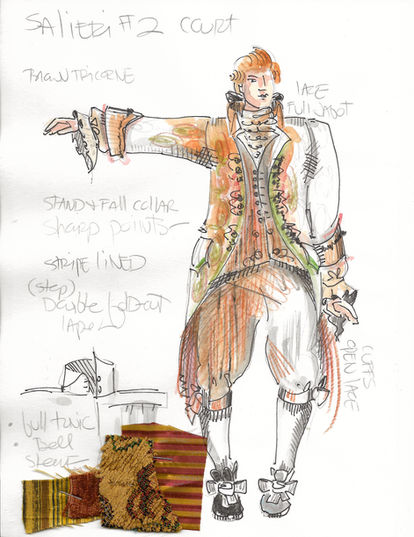 SALIERI #2 COURT
TRICORNE
LACE
FULL JABOT
STAND & FALL COLLAR
Sharp points
STRIPE LINED
(step)
Double
lapel
CUFFS
OPEN LACE
full tunic
Bell